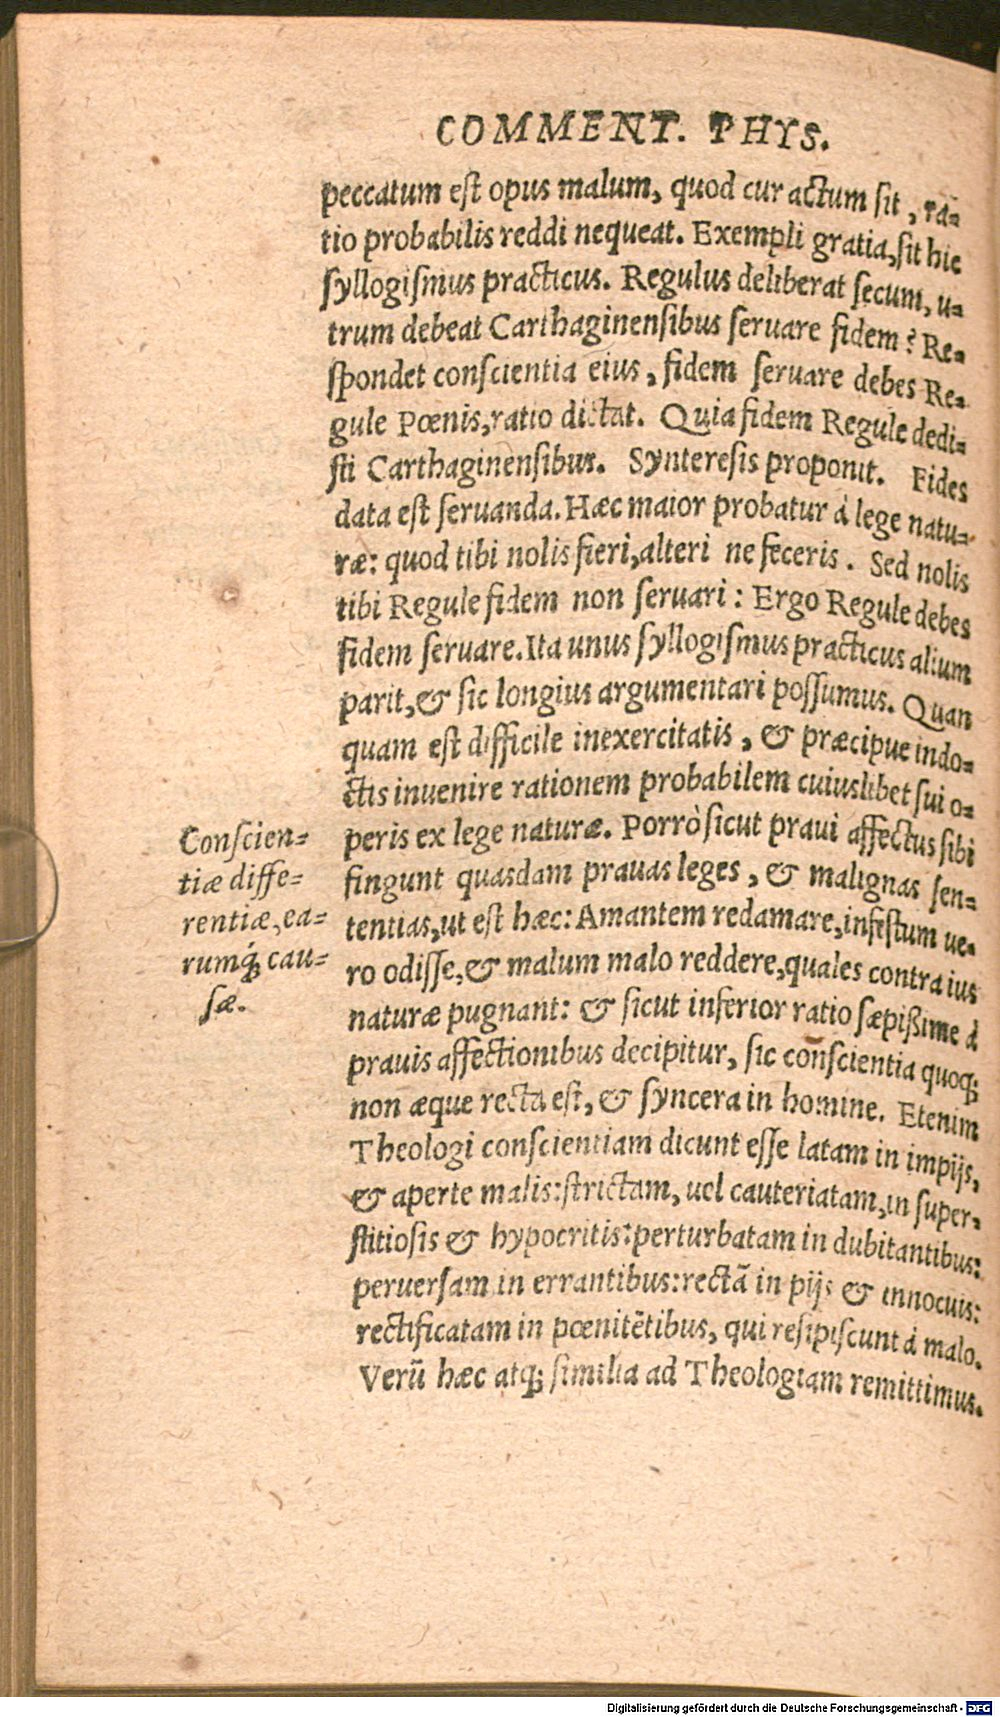 COMMENT. PHYS.
peccatum eſt opus malum, quod cur actum ſit, ra-
tio probabilis reddi nequeat. Exempli gratia, ſit hic
ſyllogiſmus practicus. Regulus deliberat ſecum, u-
trum debeat Carthaginenſibus ſeruare fidem? Re-
ſpondet conſcientia eius, fidem ſeruare debes Re-
gule Pœnis, ratio dictat. Quia fidem Regule dedi-
ſti Carthaginenſibus. Synteresis proponit. Fides
data eſt ſeruanda. Hæc maior probatur à lege natu-
ræ: quod tibi nolis fieri, alteri ne feceris. Sed nolis
tibi Regule fidem non ſeruari: Ergo Regule debes
fidem ſeruare. Ita unus ſyllogiſmus practicus alium
parit, & ſic longius argumentari poſſumus. Quan
quam eſt difficile inexercitatis, & præcipue indo-
ctis inuenire rationem probabilem cuiuslibet ſui o-
peris ex lege naturæ. Porrò ſicut praui affectus ſibi
fingunt quasdam prauas leges, & malignas ſen-
tentias, ut eſt hæc: Amantem redamare, infeſtum ue-
ro odiſſe, & malum malo reddere, quales contra ius
naturæ pugnant: & ſicut inferior ratio ſæpißime à
prauis affectionibus decipitur, ſic conſcientia quoq;
non æque recta eſt, & ſyncera in homine. Etenim
Theologi conſcientiam dicunt eſſe latam in impijs,
& aperte malis: ſtrictam, uel cauteriatam, in ſuper-
ſtitioſis & hypocritis: perturbatam in dubitantibus:
peruerſam in errantibus: rectã in pijs & innocuis:
rectificatam in pœnitẽtibus, qui reſipiſcunt à malo.
Verũ hæc atq; ſimilia ad Theologiam remittimus.
Conſcien-
tiæ diffe-
rentiæ, ea-
rumq́; cau-
ſæ.
Digitalisierung gefördert durch die Deutsche Forschungsgemeinschaft - DFG